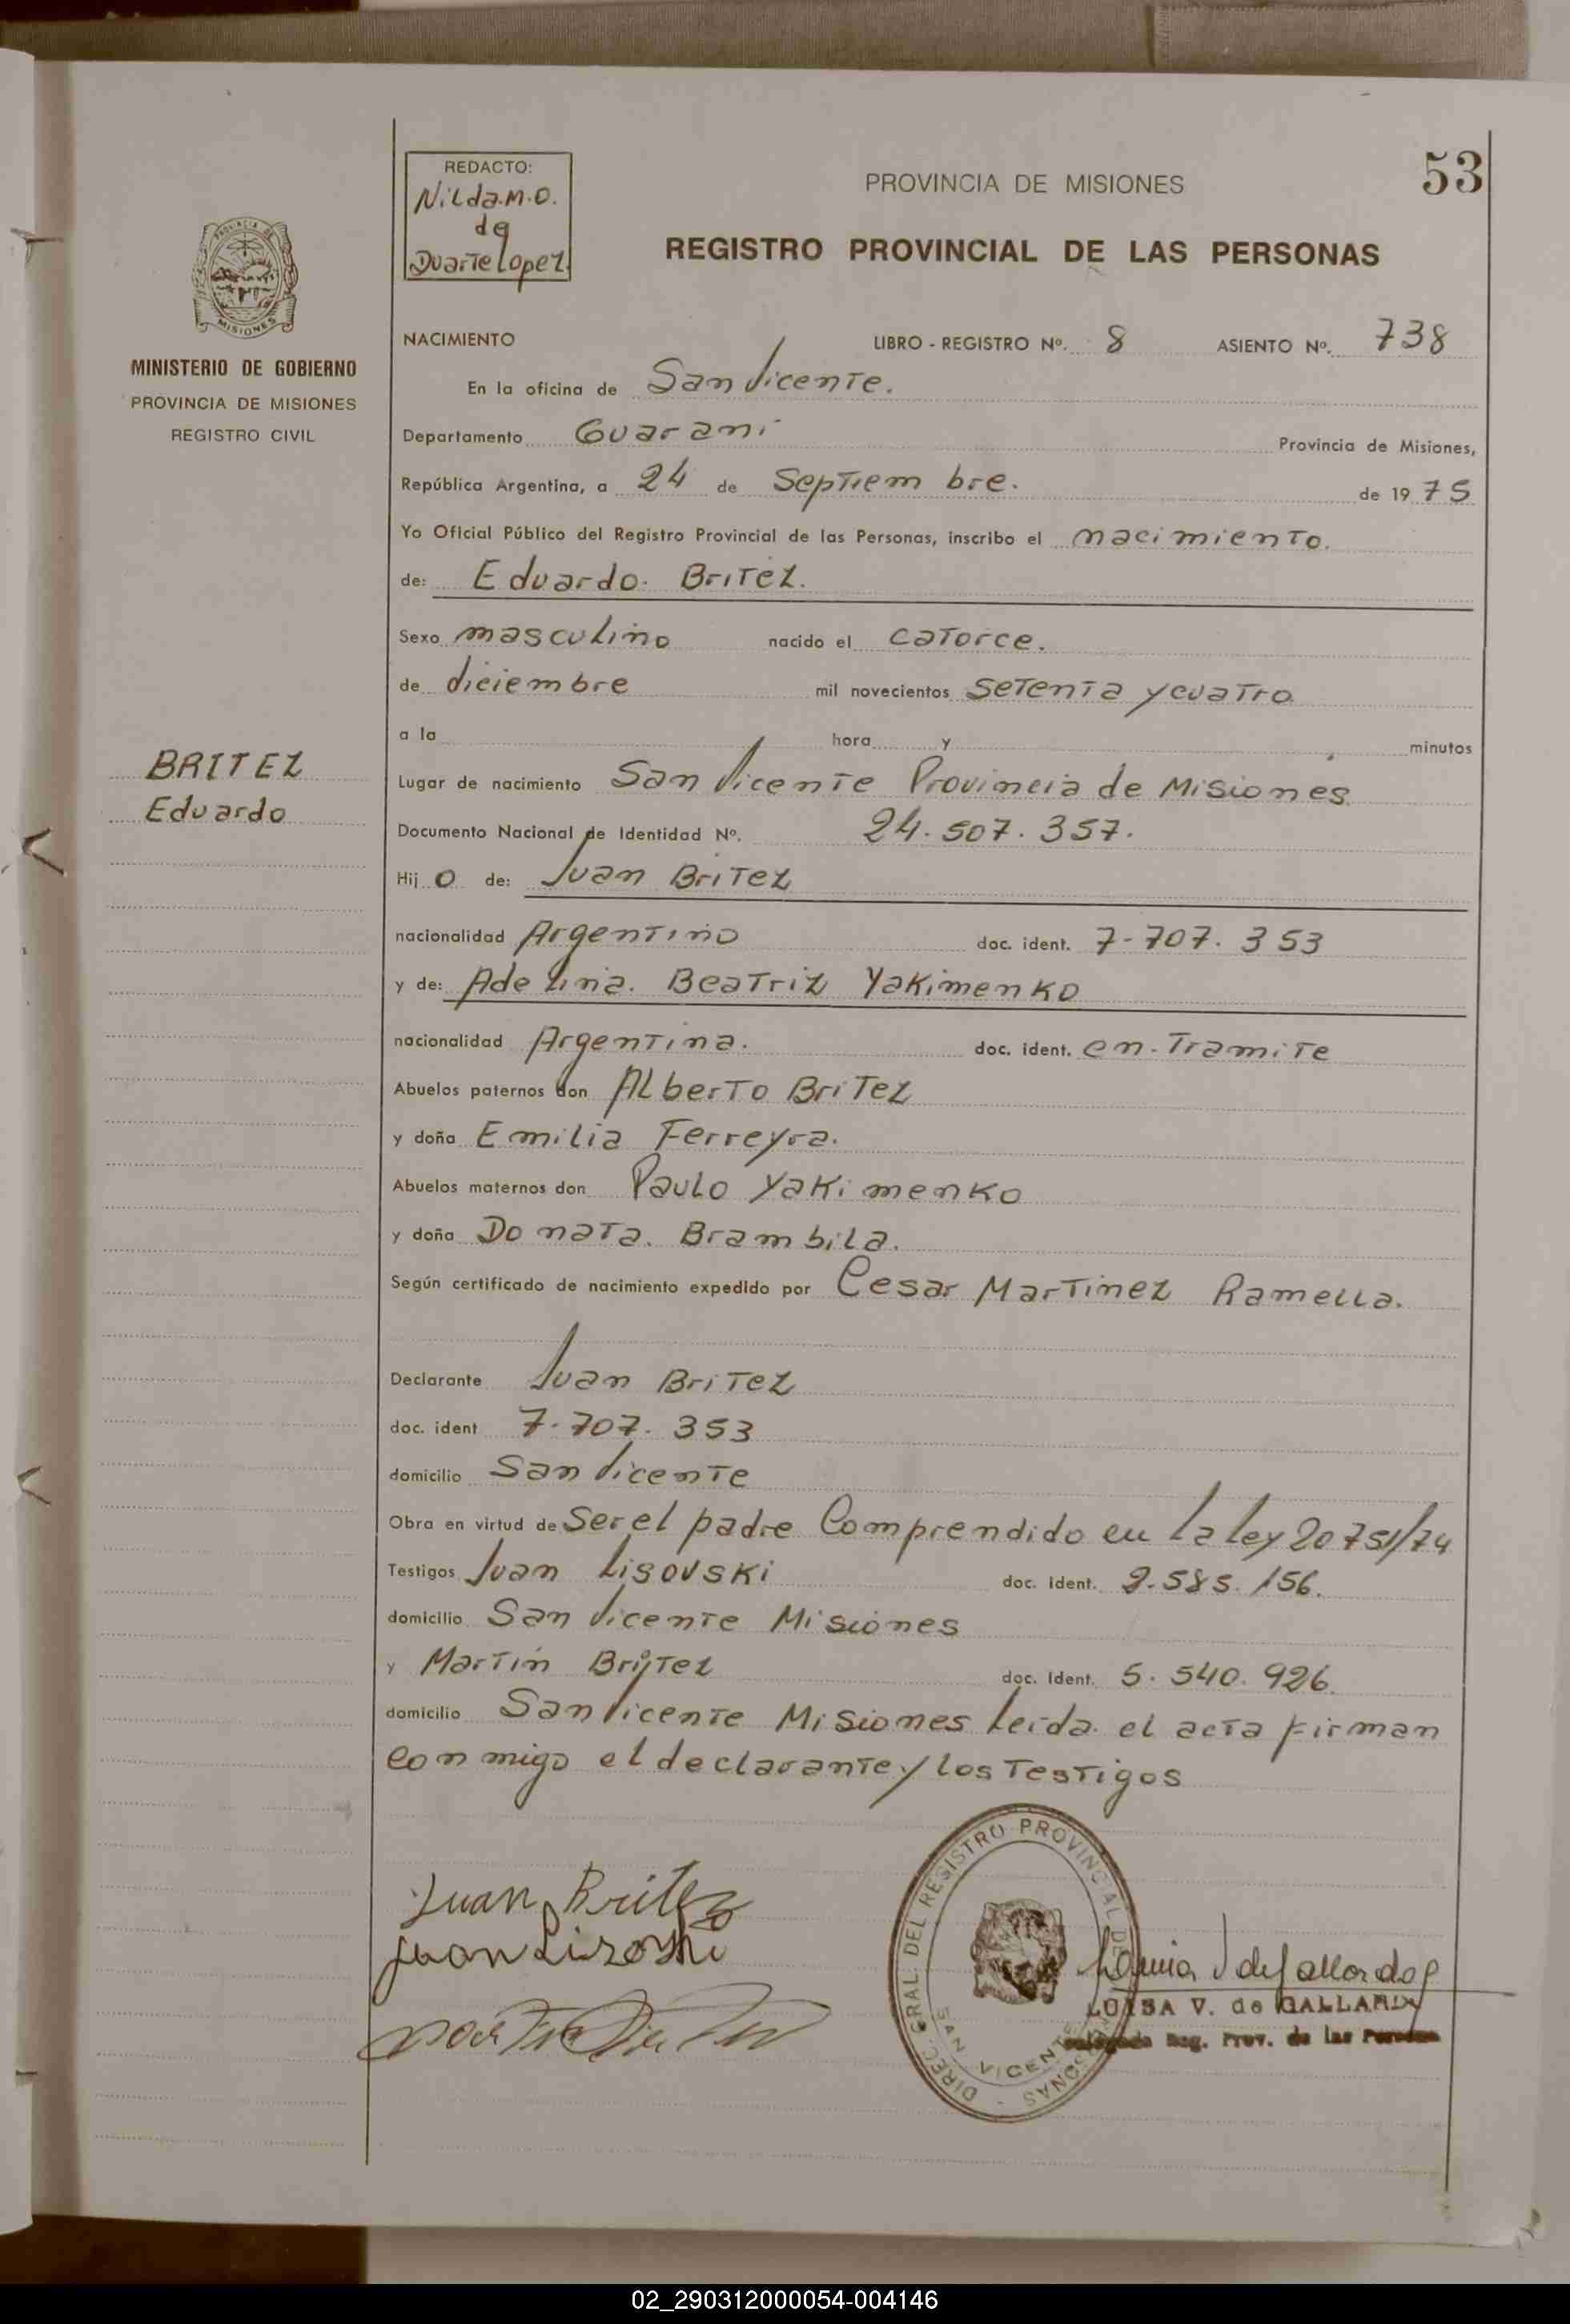 53
REDACTO:
Nilda.M.O.
de
Duarte Lopez.
PROVINCIA DE MISIONES
REGISTRO PROVINCIAL DE LAS PERSONAS
PROVINCIA DE
MISIONES
MINISTERIO DE GOBIERNO
PROVINCIA DE MISIONES
REGISTRO CIVIL
NACIMIENTO LIBRO - REGISTRO Nº. 8 ASIENTO Nº. 738
En la oficina de San Vicente.
Departamento Guarani Provincia de Misiones,
República Argentina, a 24 de Septiembre. de 1975
Yo Oficial Público del Registro Provincial de las Personas, inscribo el nacimiento.
de: Eduardo. Britez.
Sexo masculino nacido el catorce.
de diciembre mil novecientos setenta y cuatro
a la hora y minutos
BRITEZ
Eduardo
Lugar de nacimiento San Vicente Provincia de Misiones
Documento Nacional de Identidad Nº. 24.507.357.
Hij o de: Juan Britez
nacionalidad Argentino doc. ident. 7-707.353
y de: Adelina. Beatriz Yakimenko
nacionalidad Argentina. doc. ident. en-Tramite
Abuelos paternos don Alberto Britez
y doña Emilia Ferreyra.
Abuelos maternos don Paulo Yakimenko
y doña Donata. Brambila.
Según certificado de nacimiento expedido por Cesar Martinez Ramella.
Declarante Juan Britez
doc. ident 7-707.353
domicilio San Vicente
Obra en virtud de Ser el padre Comprendido en la ley 20751/74
Testigos Juan Lisovski doc. ident. 2.585.156.
domicilio San Vicente Misiones
y Martín Britez doc. Ident. 5.540.926.
domicilio San Vicente Misiones Leida. el acta firman
conmigo el declarante y los Testigos
Juan Britez
DIREC. GRAL. DEL REGISTRO PROVINCIAL DE PERSONAS
SAN VICENTE
LUISA V. de GALLARDO
Delegada Reg. Prov. de las Personas
02_290312000054-004146